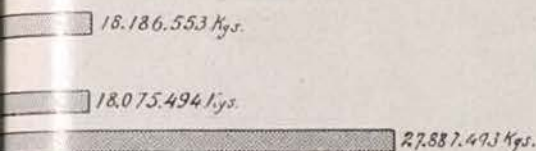 18.186.553 Kgs.
18.075.494 Kgs.
27.887.493 Kgs.